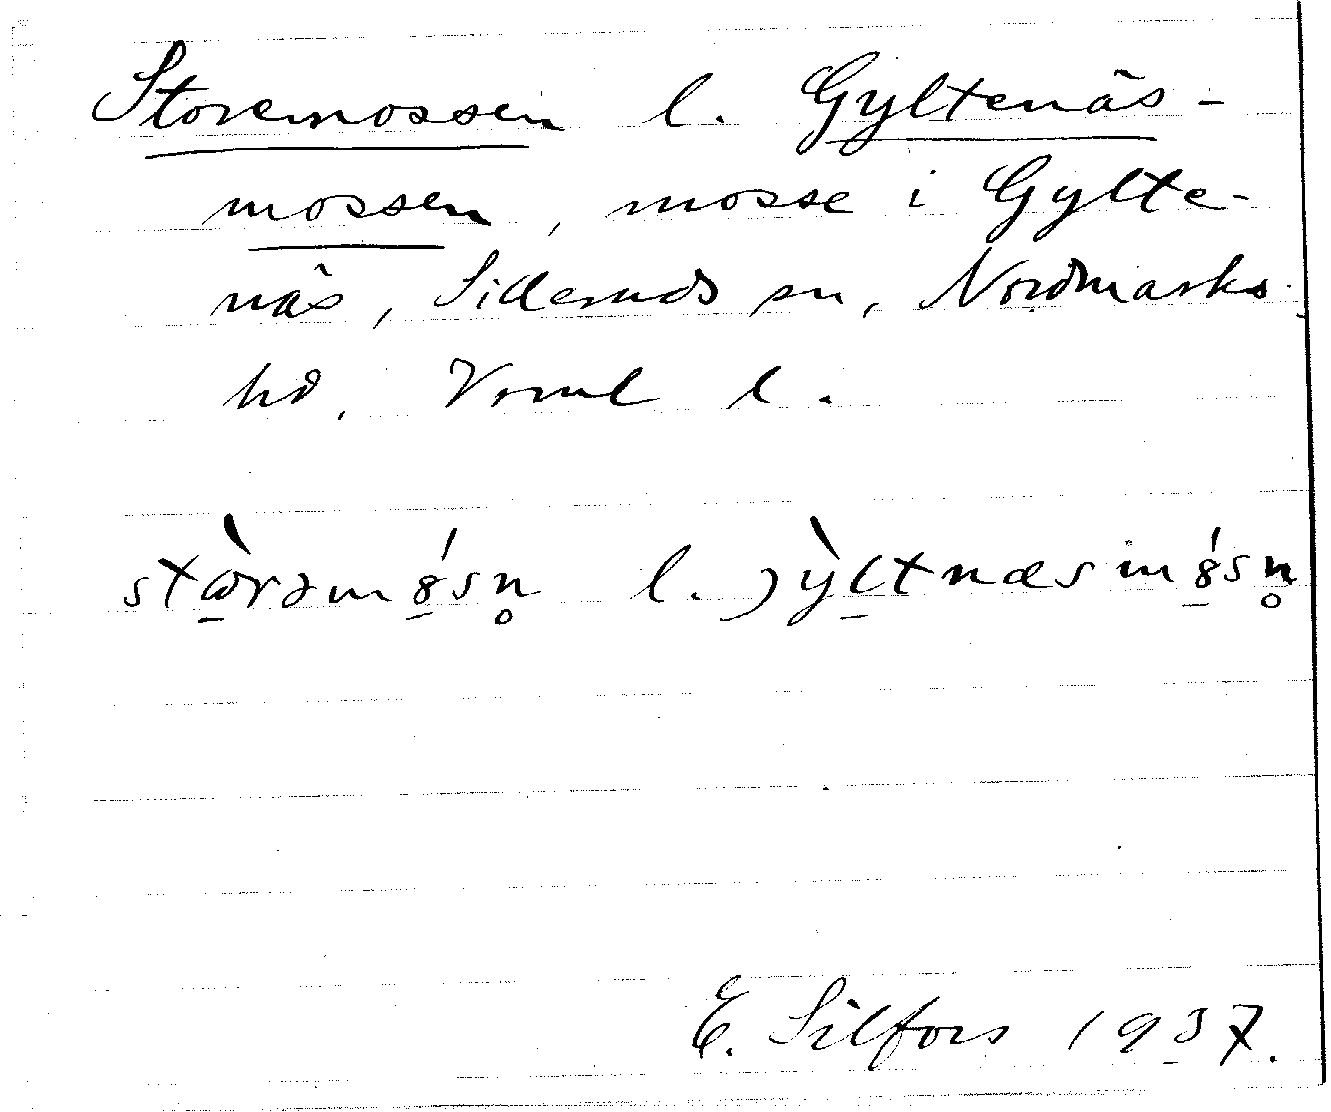 Storemossen l. Gyltenäs-
mossen, mosse i Gylte-
näs, Silleruds sn, Nordmarks
hd. Vrml l.
stɷ̀rəmȣ́sn̥ l. jỳltnæsmȣ́sn̥
E. Silfors 1937.